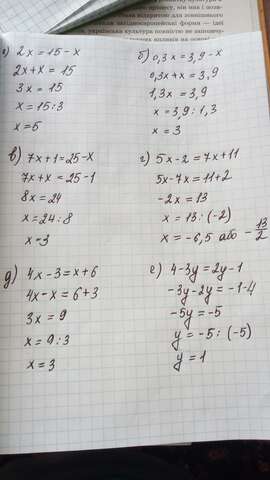 а) 2x = 15 - x
2x + x = 15
3x = 15
x = 15 : 3
x = 5
б) 0,3x = 3,9 - x
0,3x + x = 3,9
1,3x = 3,9
x = 3,9 : 1,3
x = 3
в) 7x + 1 = 25 - x
7x + x = 25 - 1
8x = 24
x = 24 : 8
x = 3
г) 5x - 2 = 7x + 11
5x - 7x = 11 + 2
-2x = 13
x = 13 : (-2)
x = -6,5 або -13/2
д) 4x - 3 = x + 6
4x - x = 6 + 3
3x = 9
x = 9 : 3
x = 3
е) 4 - 3y = 2y - 1
-3y - 2y = -1 - 4
-5y = -5
y = -5 : (-5)
y = 1